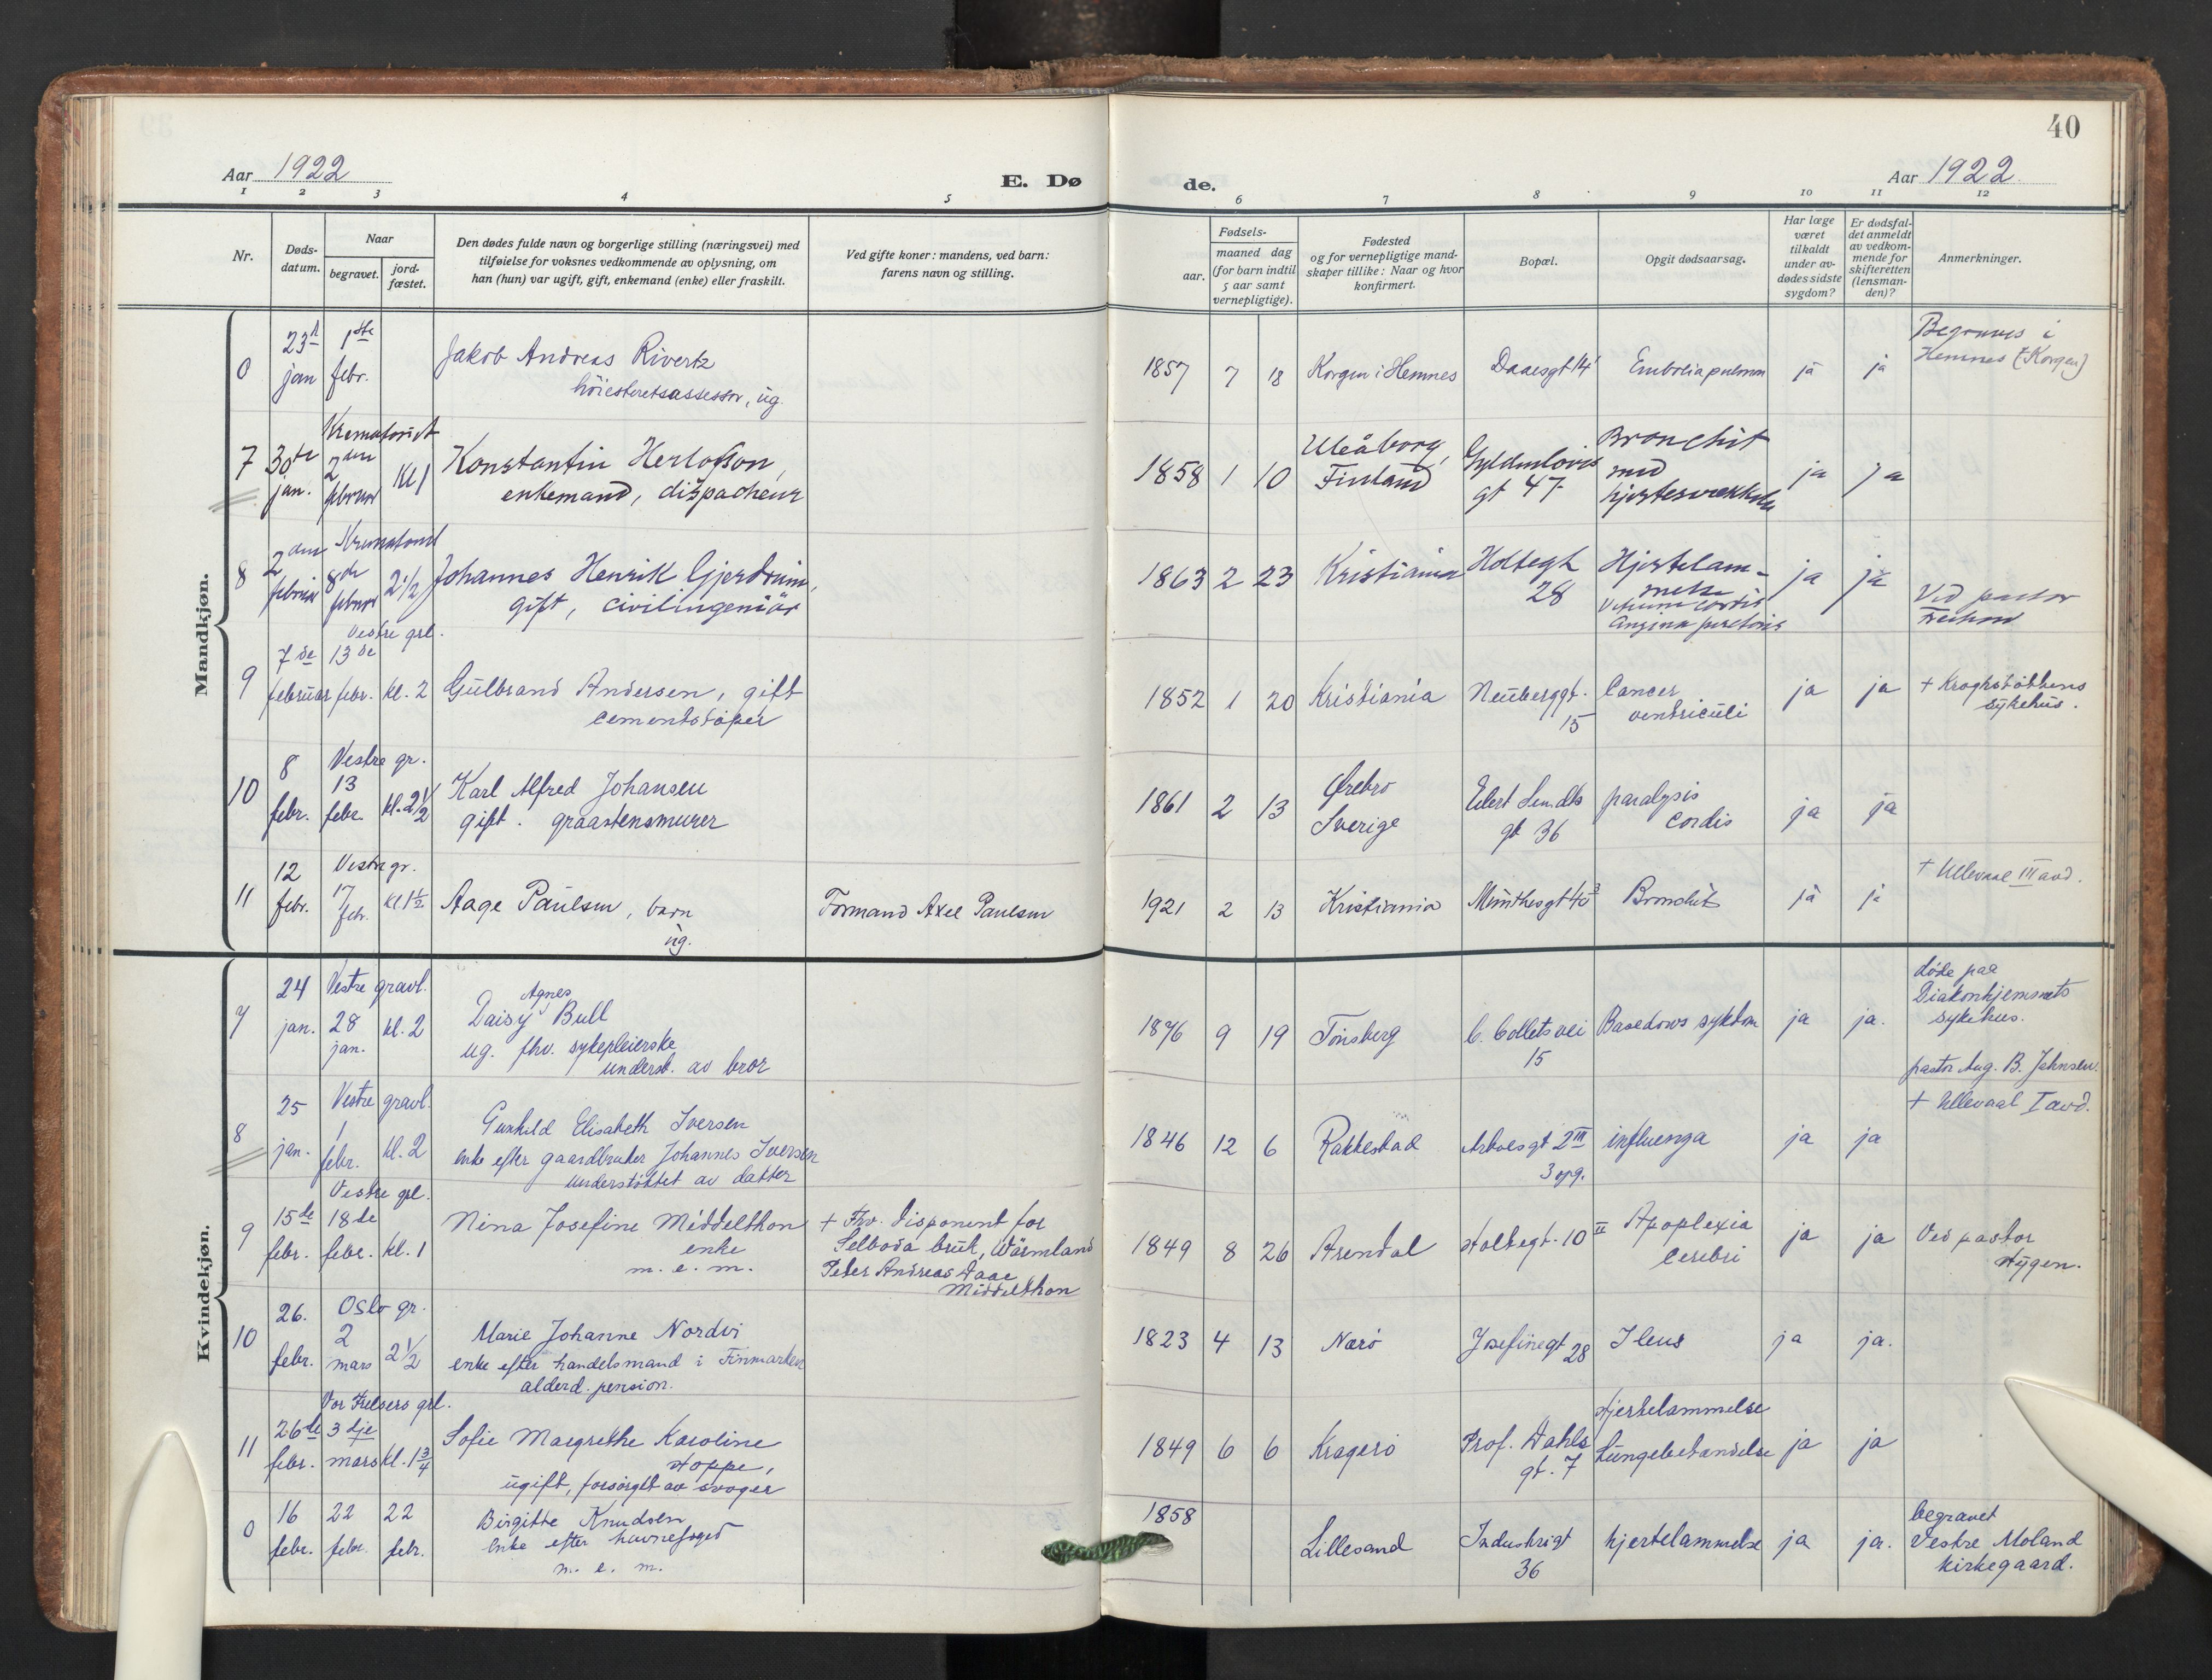 40
Aar 1922
E. Dø
de.
Aar 1922
1 2 3 4 5 6 7 8 9 10 11 12
Nr.
Døds-
datum.
Naar
begravet.
jord-
fæstet.
Den dødes fulde navn og borgerlige stilling (næringsvei) med
tilføielse for voksnes vedkommende av oplysning, om
han (hun) var ugift, gift, enkemand (enke) eller fraskilt.
Ved gifte koner: mandens, ved barn:
farens navn og stilling.
Fødsels-
aar.
maaned dag
(for barn indtil
5 aar samt
vernepligtige).
Fødested
og for vernepligtige mand-
skaper tillike: Naar og hvor
konfirmert.
Bopæl.
Opgit dødsaarsag.
Har læge
været
tilkaldt
under av-
dødes sidste
sygdom?
Er dødsfal-
det anmeldt
av vedkom-
mende for
skifteretten
(lensman-
den)?
Anmerkninger.
Mandkjøn.
0
23
jan
1ste
febr.
Jakob Andreas Rivertz
høiesteretsassessor, ug.
1857 7 18
Korgen i Hemnes
Daaesgt 14
Embolia pulmon
ja
ja
Begraves i
Hemnes (Korgen)
7
30te
jan.
Krematoriet
2den
februar
kl 1
Konstantin Herlofson,
enkemand, dispacheur
1858 1 10
Uleåborg,
Finland
Gyldenløves
gt 47
Bronchit
med
hjertesvækkelse
ja
ja
8
2den
februar
Krematoriet
8de
februar
2 1/2
Johannes Henrik Gjerdrum,
gift, civilingeniør
1863 2 23
Kristiania
Holtegt
28
Hjertelam-
melse
Vitium cordis
Angina pectoris
ja
ja
Ved pastor
9
7de
februar
Vestre grl.
13de
febr.
kl. 2
Gulbrand Andersen, gift
cementstøper
1852 1 20
Kristiania
Neuberggt.
15
Cancer
ventriculi
ja
ja
+ Kroghstøttens
sykehus.
10
8
febr.
Vestre gr.
13
febr.
kl. 2 1/2
Karl Alfred Johansen
gift. graastensmurer
1861 2 13
Ørebro
Sverige
Eilert Sundts
gt 36
paralysis
cordis
ja
ja
11
12
febr.
Vestre gr.
17
febr.
kl 1 1/2
Aage Paulsen, barn
ug.
Formand Axel Paulsen
1921 2 13
Kristiania
Munthesgt 40 3
Bronchit
ja
ja
+ Ullevaal III avd.
Kvindekjøn.
7
24
jan.
Vestre gravl.
28
jan.
kl. 2
Agnes
Daisy Bull
ug. fhv. sykepleierske
underst. av bror
1876 9 19
Tønsberg
C. Colletsvei
15
Basedows sykdom
ja
ja.
døde paa
Diakonhjemmets
sykehus.
pastor Aug. B. Jahnsen.
8
25
jan.
Vestre gravl.
1
febr.
kl. 2
Gunhild Elisabeth Iversen
enke efter gaardbruker Johannes Iversen
understøttet av datter
1846 12 6
Rakkestad
Arboesgt 2 III
3 opg.
influenza
ja
ja
+ Ullevaal I avd.
9
15de
febr.
Vestre grl.
18de
febr.
kl. 1
Nina Josefine Middelthon
enke
m. e. m.
+ Fhv. disponent for
Selboda bruk, Wärmland
Peter Andreas Daae
Middelthon
1849 8 26
Arendal
Holtegt. 10 II
Apoplexia
Cerebri
ja
ja
Ved pastor
Hygen.
10
26.
febr.
Oslo gr.
2
mars
2 1/2
Marie Johanne Nordvi
enke efter handelsmand i Finmarken
alderd. pension.
1823 4 13
Nærø
Josefinegt 28
Ileus
ja
ja.
11
26de
febr.
Vor Frelsers grl.
3dje
mars
kl. 1 3/4
Sofie Margrethe Karoline
Hoppe,
ugift, forsørget av svoger
1849 6 6
Kragerø
Prof. Dahls
gt. 7
Hjertelammelse
Lungebetændelse
ja
ja
0
16
febr.
22
febr.
22
febr.
Birgitte Knudsen
enke efter havnefoged
m. e. m.
1858
Lillesand
Industrigt
36
hjertelammelse
ja
ja.
begravet
Vestre Moland
kirkegaard.